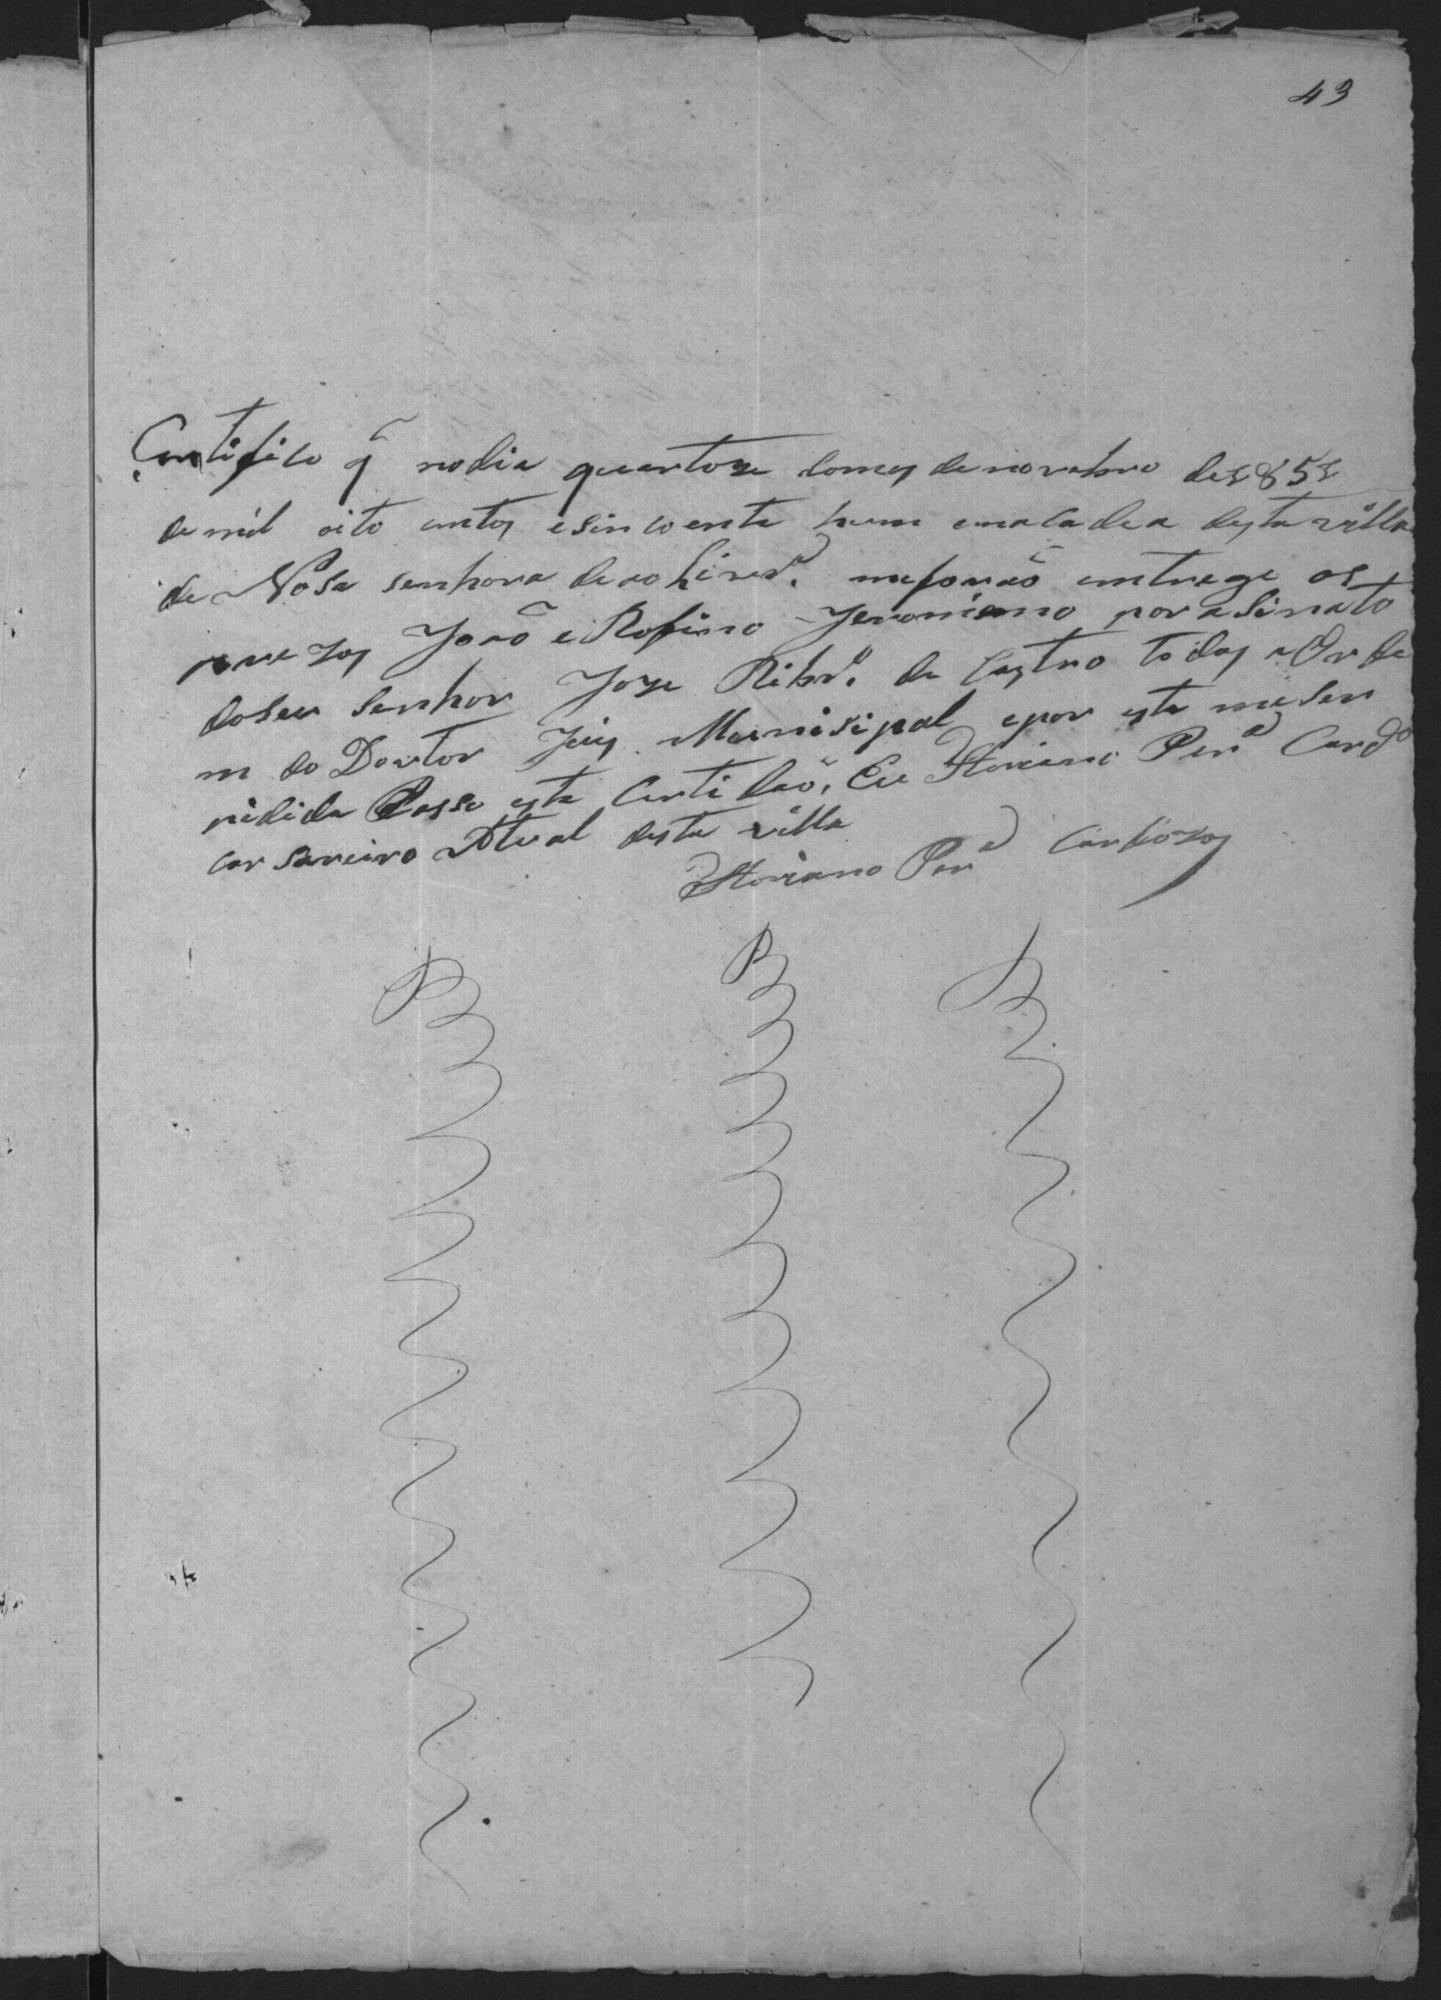 43
Certifico q̃ no dia quartoze do mes de novebro de 1851
de mil oito centos e sincoenta hum em a cadea desta villa
de Nosa senhora de oliverª. me forão emtrege os
prezos João e Rofino Jeronimo por asinato
do seu senhor Joze Ribrº. de Castro todos a Orde
m do Doutor Juis Munisipal e por esta me ser
pidida Passo esta Certidão, Eu Floriano Perª Cardº
carsareiro Atual desta villa
Floriano Perª Cardozo